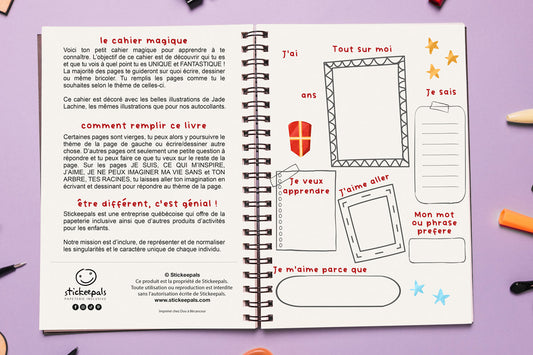 le cahier magique
Voici ton petit cahier magique pour apprendre à te
connaître. L'objectif de ce cahier est de découvrir qui tu es
et que tu vois à quel point tu es UNIQUE et FANTASTIQUE !
La majorité des pages te guideront sur quoi écrire, dessiner
ou même bricoler. Tu remplis les pages comme tu le
souhaites selon le thème de celles-ci.
Ce cahier est décoré avec les belles illustrations de Jade
Lachine, les mêmes illustrations que pour nos autocollants.
comment remplir ce livre
Certaines pages sont vierges, tu peux alors y poursuivre le
thème de la page de gauche ou écrire/dessiner autre
chose. D'autres pages ont seulement une petite question à
répondre et tu peux faire ce que tu veux sur le reste de la
page. Sur les pages JE SUIS, CE QUI M'INSPIRE,
J'AIME, JE NE PEUX IMAGINER MA VIE SANS et TON
ARBRE, TES RACINES, tu laisses aller ton imagination en
écrivant et dessinant pour répondre au thème de la page.
être différent, c'est génial !
Stickeepals est une entreprise québécoise qui offre de la
papeterie inclusive ainsi que d'autres produits d'activités
pour les enfants.
Notre mission est d'inclure, de représenter et de normaliser
les singularités et le caractère unique de chaque individu.
stickeepals
PAPETERIE INCLUSIVE
© Stickeepals
Ce produit est la propriété de Stickeepals.
Toute utilisation ou reproduction est interdite
sans l'autorisation écrite de Stickeepals.
www.stickeepals.com
Imprimé chez Duo à Bécancour
Tout sur moi
J'ai
ans
Je sais
Je veux
apprendre
J'aime aller
Mon mot
ou phrase
préféré
Je m'aime parce que